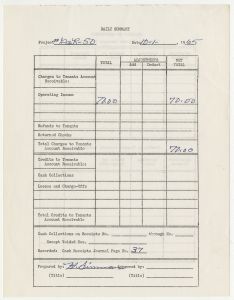 DAILY SUMMARY
Project Date 10-1- 1965
TOTAL ADJUSTMENTS NET TOTAL
Add Deduct
Charges to Tenants Account Receivable:
Operating Income 70.00 70.00
Refunds to Tenants
Returned Checks
Total Charges to Tenants Account Receivable 70.00
Credits to Tenants Account Receivable:
Cash Collections
Losses and Charge-Offs
Total Credits to Tenants Account Receivable
Cash Collections on Receipts No. through No.
Except Voided Nos.
Recorded: Cash Receipts Journal Page No. 37
Prepared by: by:
(Title) (Title)